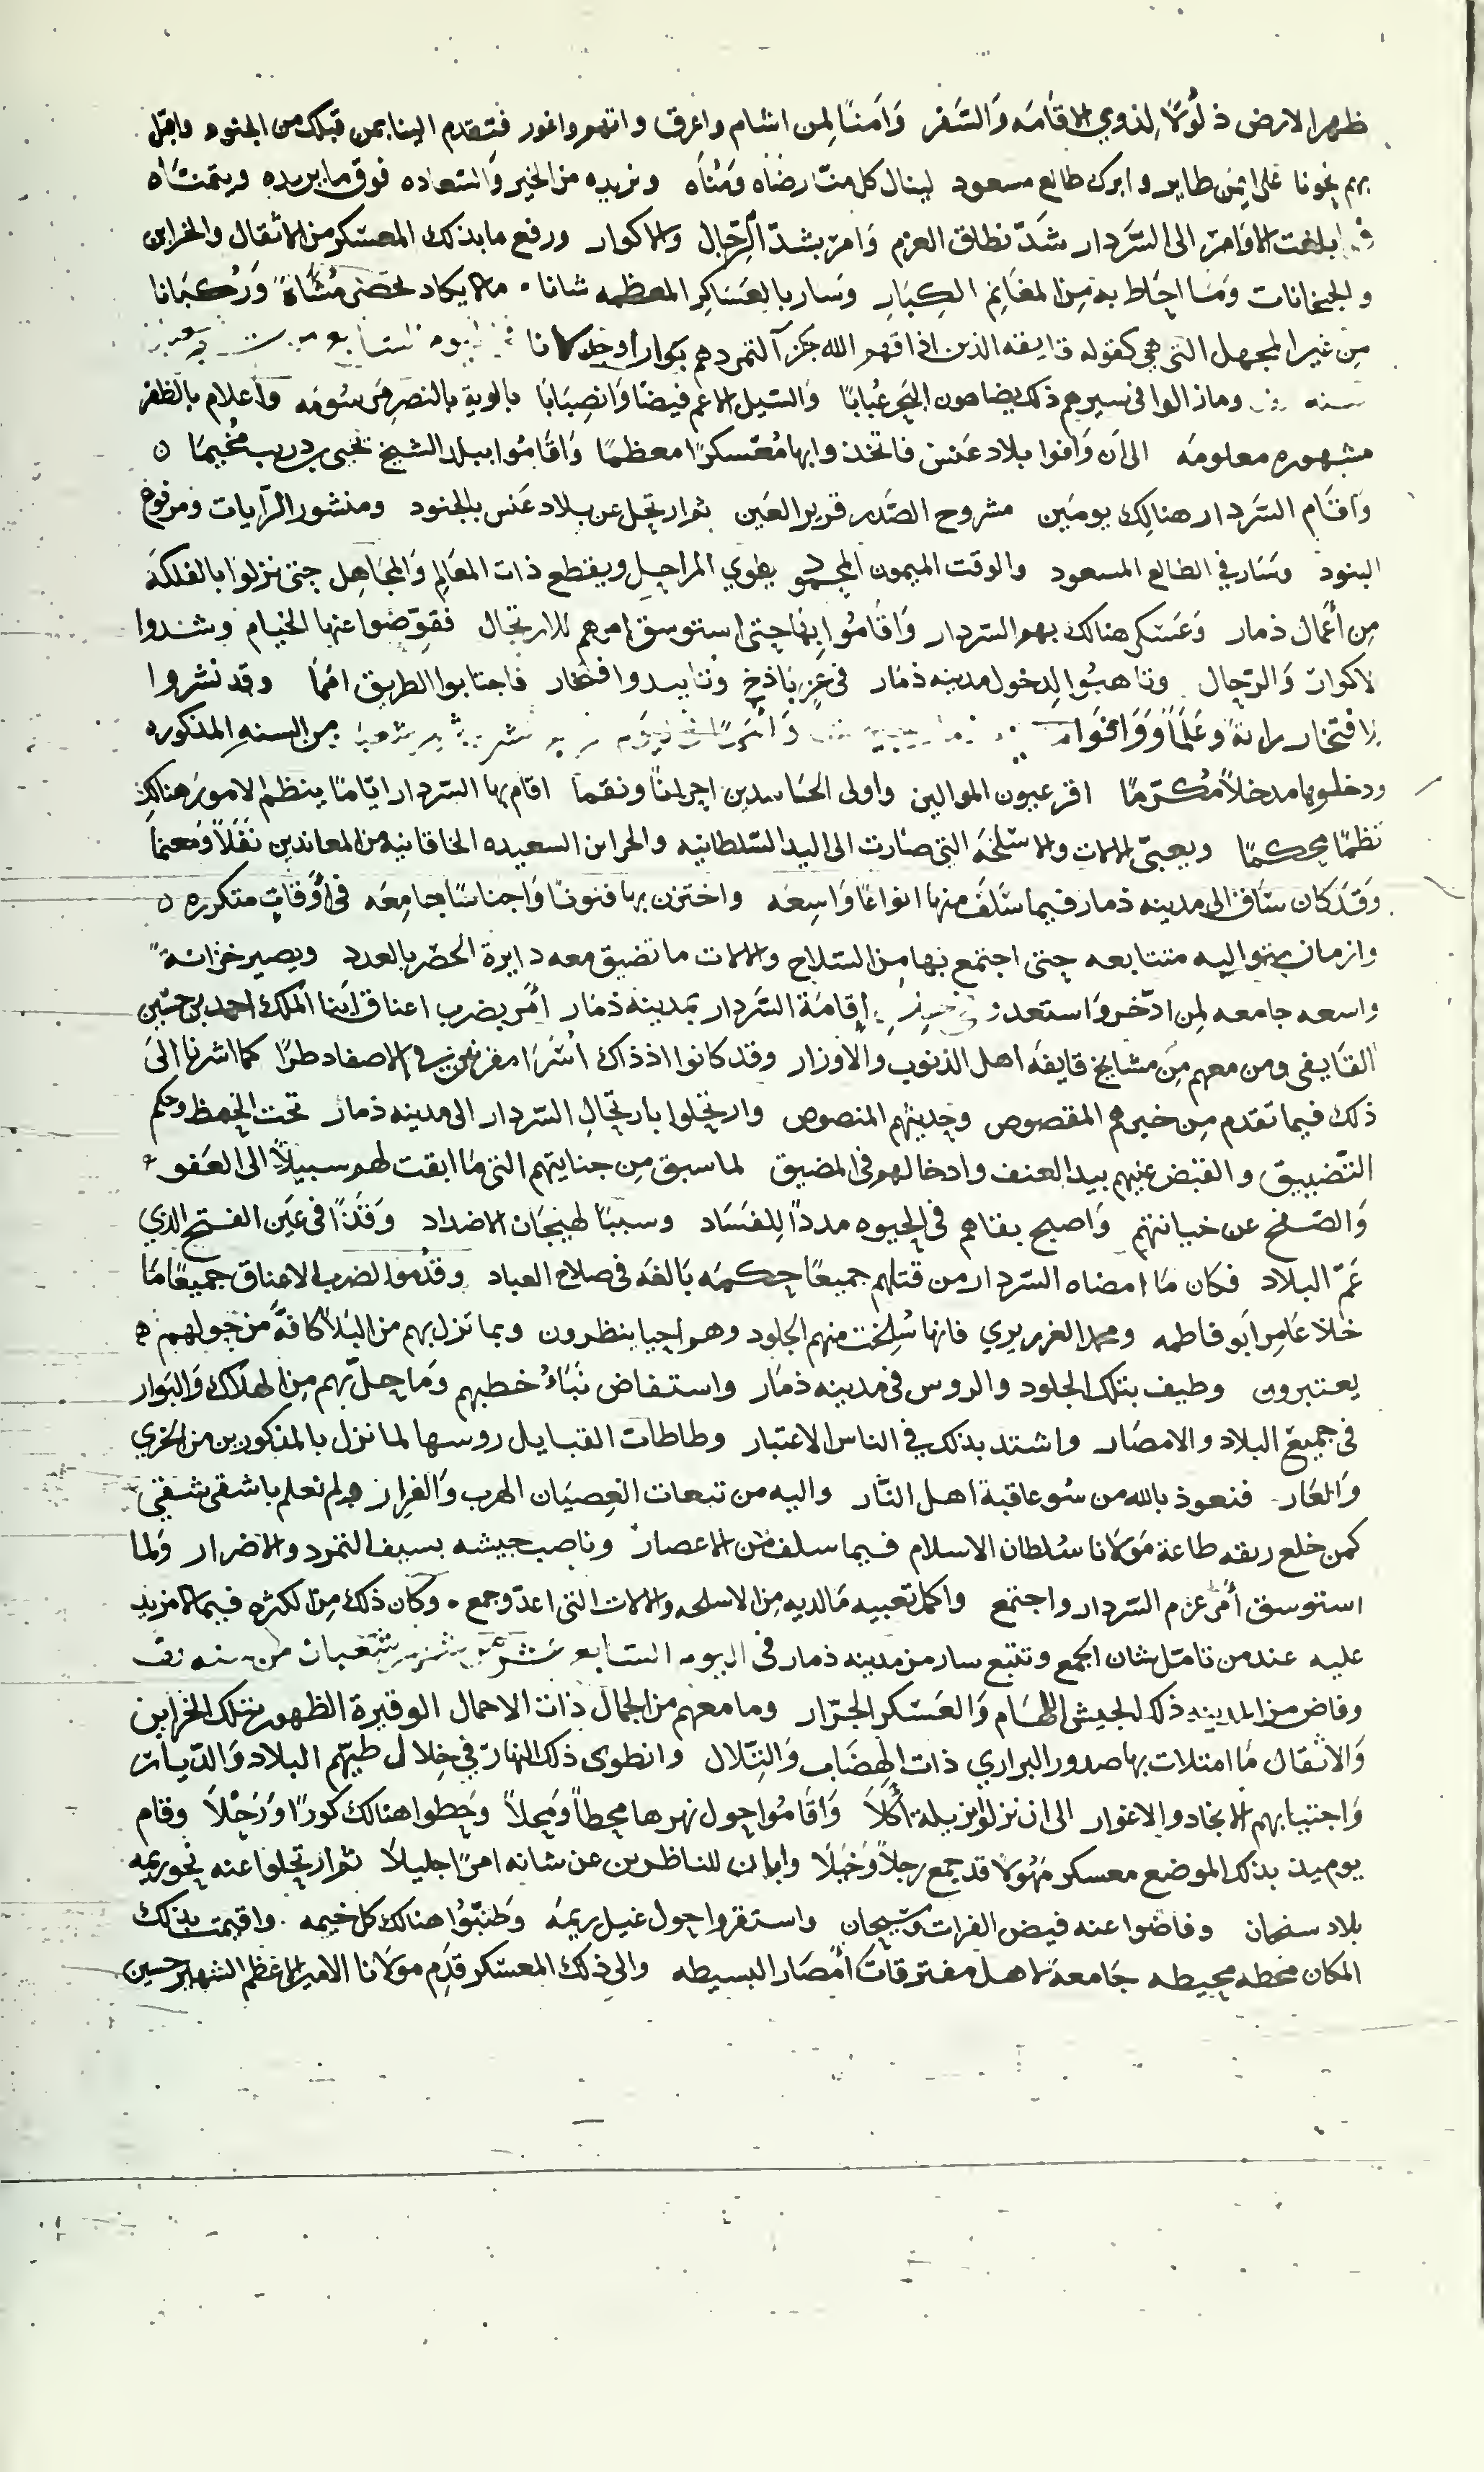 ظهر الارض ذلولًا لذوي الاقامه والسَفر وَامنًا لمن اشام واعرق واتهم واغور فتقدم الينا بمن قبلك من الجنود واقبل
بهم نحونا على ايمن طاير وابرك طالع مسعود لينال كل منا رضاه ومُناه ونزيده من الخير والسعاده فوق ما يريده ويتمناه
بلغت الاوامر الى السَّردار شدّ نطاق العزم وَامر بشدّ الرّحال والاكوار ورفع ما بذلك المعسكر من الاثقال والخزاين
والجبخانات وَمَا احَاط به مِن المغانِم الكِبَارِ وسَار بالعَسَاكِر المعظمه شانا ما لا يكاد تحصى مُشَاةً وَرُكبَانا
مِن المجهل التي هي كقوله قايفه الذين اذاقهم الله جزآ التمردهم بَوارا وخذلانا
سنه وما زالوا في سيرهم ذلك يضاهون البحر عُبابًا والسَيل الاعم فيضًا وَانصِبَابًا بالوية بالنصرِ مَسُومَه وَاعلام بالظفر
مشهوره معلومَه الى اَن وَافوا بلاد عَنس فاتخذوا بها مُعَسكرًا معظمًا وَاقَامُوا ببلد الشيخ يحيى بن دريب مُخيمًا ٥
وَاقَام السَردار هنالِك يومَين مشروح الصَدر قرير العَين ثم ارتحل عن بلاد عَنس بالجنود ومنشور الرّايات ومرفوع
البنود وسَار في الطالع المسعود والوقت الميمون المحمود يطوي المراحِل ويقطع ذات المعَالِم وَالمجَاهِل حتى نزلوا بالفلكة
مِن أعمَال ذمار وَعَسكر هنالك بهم السَردار وَاقَامُوا بهَا حتى استوسق امرهم للارتحال فقوّضوا عنها الخيام وشدوا
الاكوار وَالرحال وتاهبُوا لِدخول مدينه ذمَار في عزٍ باذخ وتاييد وافتخار فاجتابوا الطريق امَمًا وقد نشروا
الافتخار راية وعَلَمًا وَوَافوا من السنه المذكوره
ودخلوها مدخلًا مُكرّمًا اقر عيون الموالين واولى الحَاسدين احزانًا ونقما اقام بها السَردار ايّامًا ينظم الامور هنالك
نَظمًا محكمًا ويعبّي الالات والاسلحَه التي صَارت الى اليد السّلطانيه والخزاين السعيده الخاقانيه من المعاندين نَفَلًا وَمغنمًا
وَقَد كان سَاق الى مدينه ذمار فيما سَلَف منها انواعًا وَاسِعَه واختزن بها فنونًا وَاجناسًا جَامِعَه في أوقاتٍ متكرره ٥
وازمان متواليه متتابعه حتى اجتمع بها من السّلاح والالات ما تضيق معه دايرة الحَصر بالعدد ويصير خزانة
واسعه جامعه لمِن ادّخر وَاستعد إقامَة السَّردار بمدينه ذمَار امَر بضرب اعناق ابنا الملك احمد بن حسَين
القَايفي ومن معهم مِن مشايخ قايفه اهل الذنوب والاوزار وقد كانوا اذ ذاك أسَرا مقرنين في الاصفاد طرًا كما اشرنا الى
ذلك فيما تقدم مِن خبرهم المقصوص وحديثهم المنصوص وارتحلوا بارتحال السَردار الى مدينه ذمار تحت الحفظ وحكم
التَّضييق والقبض عليهم بيد العنف وادخالهم في المضيق لما سبق من جنايتهم التي مَا ابقت لهم سبيلًا الى العَفو
وَالصّفح عن خيانتهم وَاصبح بقاهم في الحيوه مددًا لِلفسَاد وسببًا لهيجَان الاضداد وَقَذًا في عَين الفتح الذي
عَمّ البلاد فكان مَا امضاه السّردار من قتلهم جميعًا حكمه بَالغَه في صلاح العباد وقُدموا لضرب الاعناق جميعًا مَا
خلا عَامِر اَبو فاطمه ومحمد الغريري فانها سُلخت منهم الجلود وهم احيا ينظرون وبما نزل بهم من البَلا كافة مَن حولهم
يعتبرون وطيف بتلك الجلود والروس في مدينه ذمَار واستفاض نَبَاءُ خطبهم وَمَا حلّ بهم مِن الهلاك وَالبَوار
في جميع البلاد والامصَار واشتد بذلك في الناس الاعتبار وطاطات القبايل روسها لما نزل بالمذكورين من الخزي
وَالعَار فنعوذ بالله من سُو عاقبة اهل النَّار واليه من تبعات العِصيَان الهرب وَالفِرار ولم نعلم باشقى شقي
كمن خلع ربقه طاعة مَولَانا سُلطان الاسلام فيما سلف من الاعصار وناصب جيشه بسيف التمرد والاضرار وَلما
استوسق أمر عزم السّردار واجتمع واكمل تعبيه مَا لديه مِن الاسلحه والالات التي اعدّ وجمع وكان ذلك مِن الكثره فيما لا مزيد
عليه عند من تامَل شان الجمع وتتبع سار من مدينه ذمار في اليوم السَابع عشر شهر شعبان من سنه
وفاض من المدينه ذلك الجيش اللهَام وَالعَسَكر الجرّار وما معهم من الجمال ذات الاحمال الوقيرة الظهور بتلك الخزاين
وَالاثقال مَا امتلات بها صدور البراري ذات الهِضَاب وَالتّلال وانطوى ذلك النهار في خِلال طيّهم البلاد وَالدّيار
وَاجتيابهم الانجاد والاغوار الى ان نزلوا بزيلة أُكلا وَاقَامُوا حول نهرها محطًا وَمحِلاً وَحطوا هنالك كورًا وَرَحلًا وقام
يوميذ بذلك الموضع معسكر مَهُولا قد جمع رجلًا وَخَيلًا وابان للناظرين عن شانه امرًا جليلًا ثم ارتحلوا عنه نحو ريمه
بلاد سنحان وفاضوا عنه فيض الفرات وسَيحان واستقروا حول غيل ريمَه وَطنّبُوا هنالك كل خيمه واقيمت بذلك
المكان محطه محيطه جَامعة لاهل مفترقات أمصَار البسيطه والى ذلك المعسكر قدِم مولانا الامير الاعظم الشهاب حسين